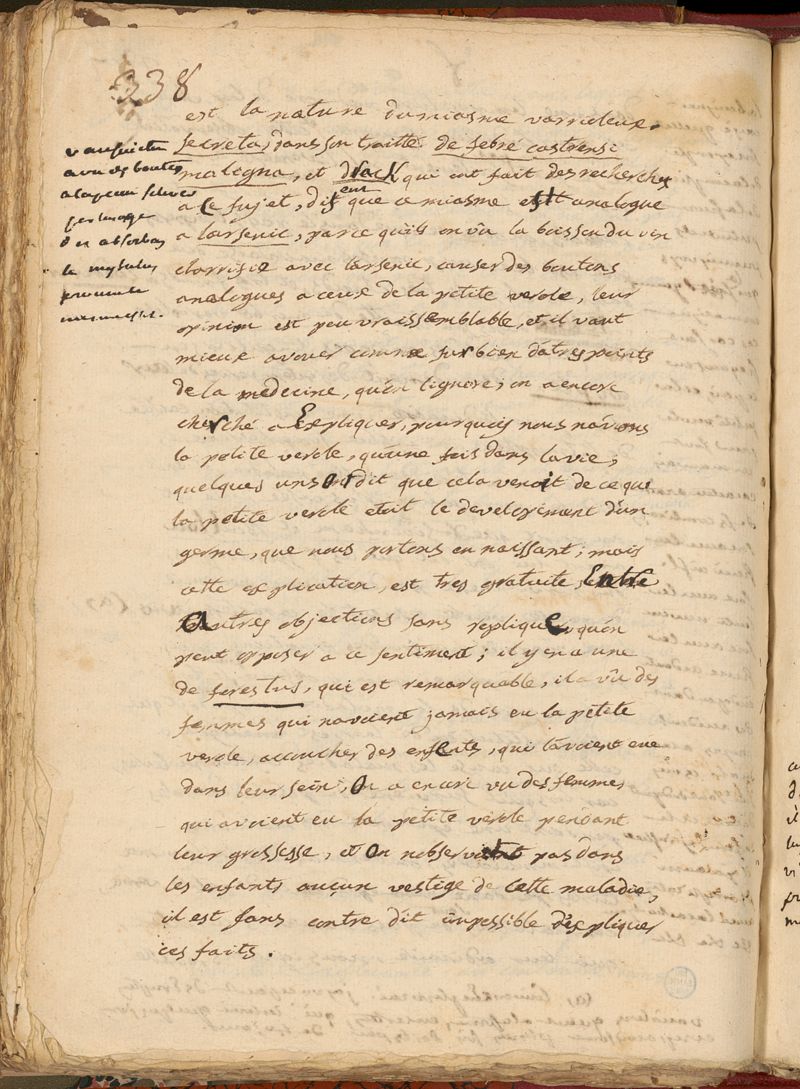 338
est la nature du miasme varioleux.
Secreta, dans son traitté de febre castrensi
maligna, et drack qui ont fait des recherches
a ce sujet, disent que ce miasme est analogue
a larsenic, parce quils on vû la boisson du vin
clarrifié avec larsenic, causer des boutons
analogues a ceux de la petite verole, leur
opinion est peu vraissemblable, et il vaut
mieux avouer comme sur bien dâtres points
de la medecine, quón lignore; on a encore
cherché a Expliquer, pourquoy nous návons
la petite verole, quúne fois dans la vie;
quelques uns on dit que cela venoit de ce que
la petite verole etoit le developement dún
germe, que nous portons en naissant; mais
cette explication, est tres gratuite, Entre
autres objections sans replique, quón
peut opposer a ce sentiment; il y en a une
de forestus, qui est remarquable, il a vû des
femmes qui navoient jamais eu la petite
verole, accoucher des enfents, qui lávoient eue
dans leur sein, On a encore vu des femmes
qui avoient eu la petite verole pendant
leur grossesse, et on nobservoit pas dans
les enfants aucun vestige de cette maladie,
il est sans contre dit impossible déxpliquer
ces faits.
avu des boutons
a la peau
per lusage
des absorbans